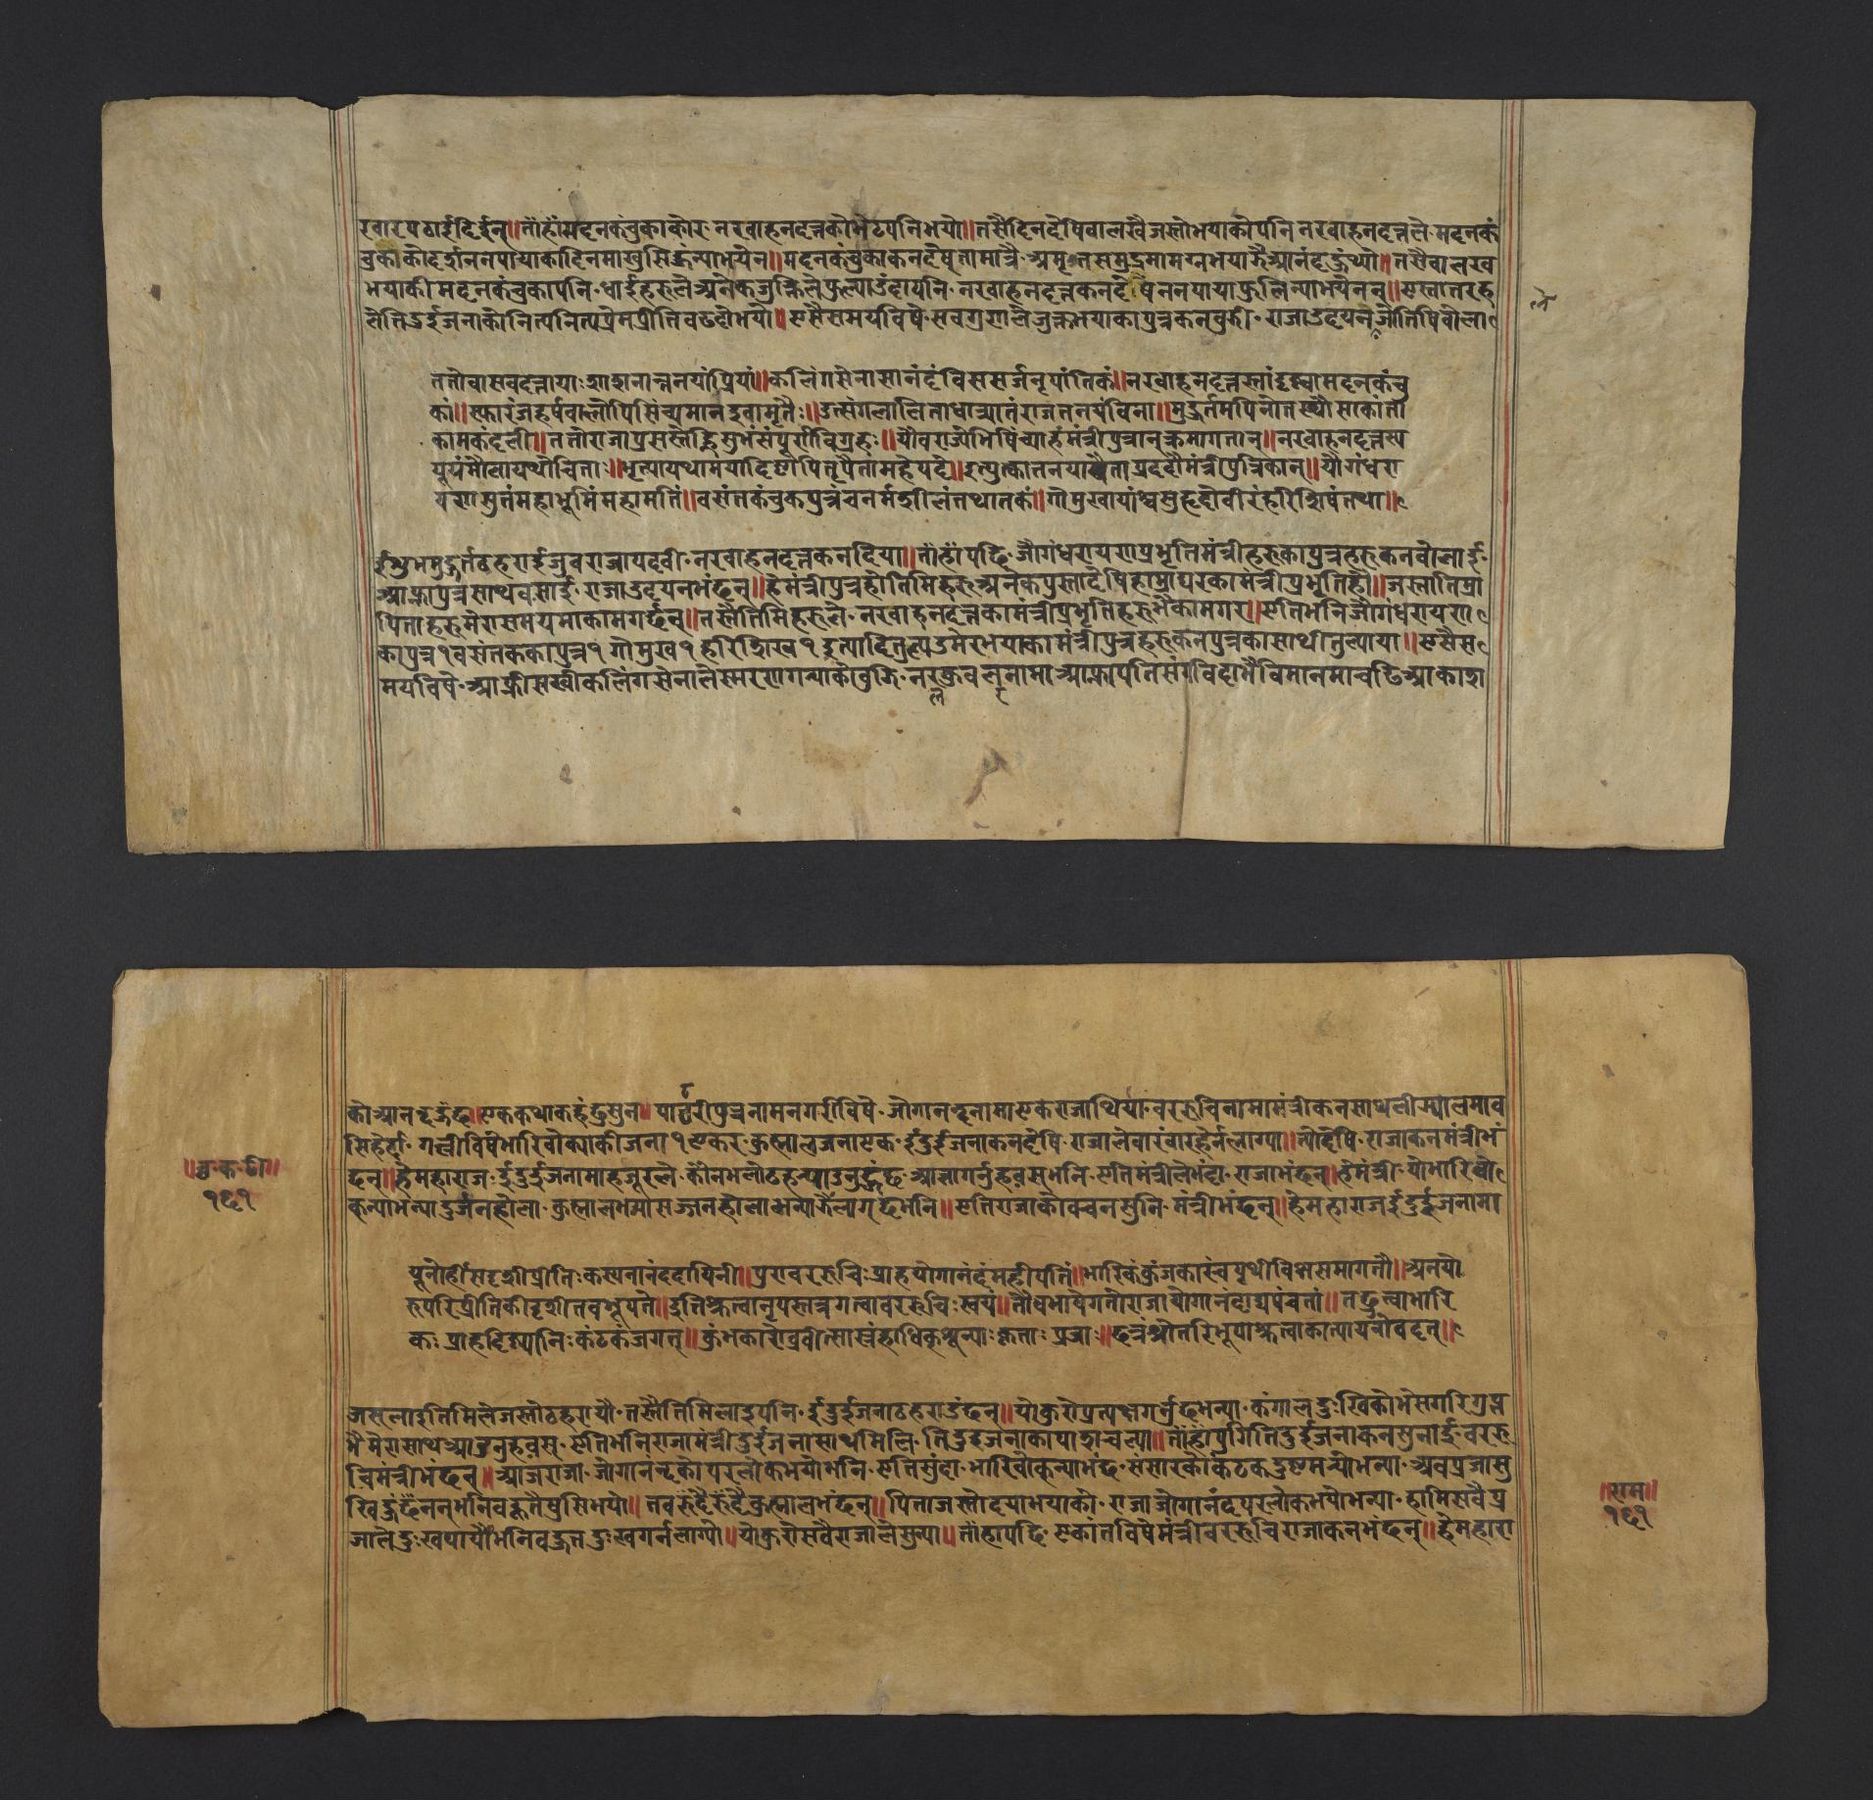 रवारपठाईदिईन्॥ताँहाँमदनकंचुकाकोर नरवाहनदत्तकोभेटपनिभयो॥तसैदिनदेषिवालखैजस्तोभयाकोपनि नरवाहनदत्तले मदनकं
चुकाकोदर्शननपायाकादिनमाखुसिहुंन्याभयेन॥मदनकंचुकाकनदेषुतामात्रै अमृतसमुद्रमामग्नभयाझैआनंदहुंथ्यो॥तसैवालख
भयाकीमदनकंचुकापनि धाईहरुलेअनेकजुक्तिलेफुल्याउंदापनि नरवाहनदत्तकनदेषिननपायाफुलिन्याभयेनन्॥एस्तातरह
लेतिदुईजनाकोनित्यनित्यप्रेमप्रीतिवढ्दोभयो॥एसैसमयविषे सवगुणलेजुक्तभयाकापुत्रकनवुझी राजाउदयनलेजोतिषिवोला
ततोवासवदत्तायाः शासनात्तनयांप्रियां॥कलिंगसेनासानंदंविससर्जनृपांतिकं॥नरवाहनदत्तस्तांदृष्ट्वामदनकंचु
कां॥स्फारंजहर्षवालोपिसिंच्यमानइवामृतैः॥उत्संगलालिताधात्र्यातंराजतनयंविना॥मुहूर्तमपिनोतस्थौसाकांता
कामकंदली॥ततोराजाप्रसस्तेह्निसुभंसंपूर्णविग्रहः॥यौवराज्येभिषिंच्याहंमंत्रीपुत्रानुक्रमागतान्॥नरवाहनदत्तस्य
यूयंमौलायथोचिताः॥भृत्यायथामयादिष्टापितृपैतामहेपदे॥इत्युक्त्वातनयायैताप्रददौमंत्रीपुत्रिकान्॥यौगंधरा
यणसुतंमहाभूमिंमहामतिं॥वसंतकंचुकपुत्रंचनर्मशीलंतथातकं॥गोमुखाख्यांश्चसुहृदोवीरंहरिशिखंतथा॥
ईशुभमुहूर्तठहराईजुवराजायदवी नरवाहनदत्तकनदिया॥ताँहाँपछि जौगंधरायणप्रभृतिमंत्रीहरुकापुत्रहरुकनवोलाई
आफ्नापुत्रसाथवसाई राजाउदयनभंछन्॥हेमंत्रीपुत्रहोतिमिहरुअनेकपुस्तादेषिहाम्राघरकामंत्रीप्रभृतिहौ॥जस्तातिम्रा
पिताहरुमेरासमयमाकामगर्छन्॥तस्तैतिमिहरुले नरवाहनदत्तकामंत्रीप्रभृतिहरुभैकामगर॥एतिभनिजौगंधरायण
कापुत्र१वसंतककापुत्र१ गोमुख१ हरिशिख१ इत्यादितुल्यउमेरभयाकामंत्रीपुत्रहरुकनपुत्रकासाथीतुल्याया॥एसैस
मयविषे आफ्रीसखीकलिंगसेनालेस्मरणगर्‍याकोवुझि नरकुवलनामाआफ्नापतिसंगविदाभैविमानमाचढिआकाश
ले
ल
कोआनन्दहुंछ॥एककथाकहंछुसुन॥पाटरीपुत्रनामनगरीविषे जोगानन्दनामाएकराजाथिया वररुचिनामामंत्रीकनसाथलीझ्यालमाव
सिहेर्दा गलीविषेभारिवोक्याकोजना१एकर कुह्मालजनाएक ईदुईजनाकनदेषि राजालेवारंवारहेर्नलाग्या॥त्योदेषि राजाकनमंत्रीभं
छन्॥हेमहाराज ईदुईजनामाहजूरले कोनभलोठहन्याउनुहुंछ आज्ञागर्नुहवस्भनि एतिमंत्रीलेभंदा राजाभंछन्॥हेमंत्री योभारिवो
कन्याभन्यादुर्जनहोला कुह्मालभन्यासज्जनहोलाभन्याझैंलाग्छभनि॥एतिराजाकोवचनसुनि मंत्रीभंछन्॥हेमहाराजईदुईजनामा
॥वृ क शे॥
१६१
यूनोर्हासदृशीप्रीतिः कस्यनानंददायिनी॥पुरावररुचिः प्राहयोगानंदंमहीपतिं॥भारिकंकुंजकारंचपृथीविक्ष्यसमागतौ॥अनयो
रुपरिप्रीतिकीदृशीतवभूपते॥इतिश्रुत्वानृपस्तत्रगत्वावररुचिः स्वयं॥तौवभाषेगतोराजायोगानंदाद्यपंचतां॥तच्छ्रुत्वाभारि
कः प्राहदिष्ट्यानिः कंटकंजगत्॥कुंभकारोव्रवीत्सास्रंहाधिक्शून्याः कृताः प्रजाः॥छन्नंश्रोतरिभूपाश्रुत्वाकात्यायनोवदत्॥
जसलाइतिमिलेजस्तोठहरायौ तस्तैतिमिलाइपनि ईदुईजनाठहराउंछन्॥योकुरोप्रत्यक्षगर्नुछभन्या कंगालदुःखिकोभेसगरिगुप्त
भैमेरासाथआउनुहवस् एतिभनिराजामंत्रीदुईजनासाथमिलि तिदुइजनाकापाशचल्या॥ताँहाँपुगितिदुईजनाकनसुनाई वररु
चिमंत्रीभंछन्॥आजराजा जोगानन्दकोपरलोकभयोभनि एतिसुंदा भारिवोकन्याभंछ संसारकोकंटकदुष्टमर्‍योभन्या अवप्रजासु
खिहुंछननभनिवहूतैषुसिभयो॥तवरुंदैरुंदैकुह्मालभंछन्॥पिताजस्तोदयाभयाको राजाजोगानंदपरलोकभयोभन्या हामिसवैप्र
जालेदुःखपायौंभनिवहूतदुःखगर्नलाग्यो॥योकुरोसवैराजालेसुन्या॥ताँहापछि एकांतविषेमंत्रीवररुचिराजाकनभंछन्॥हेमहारा
॥राम॥
१६१